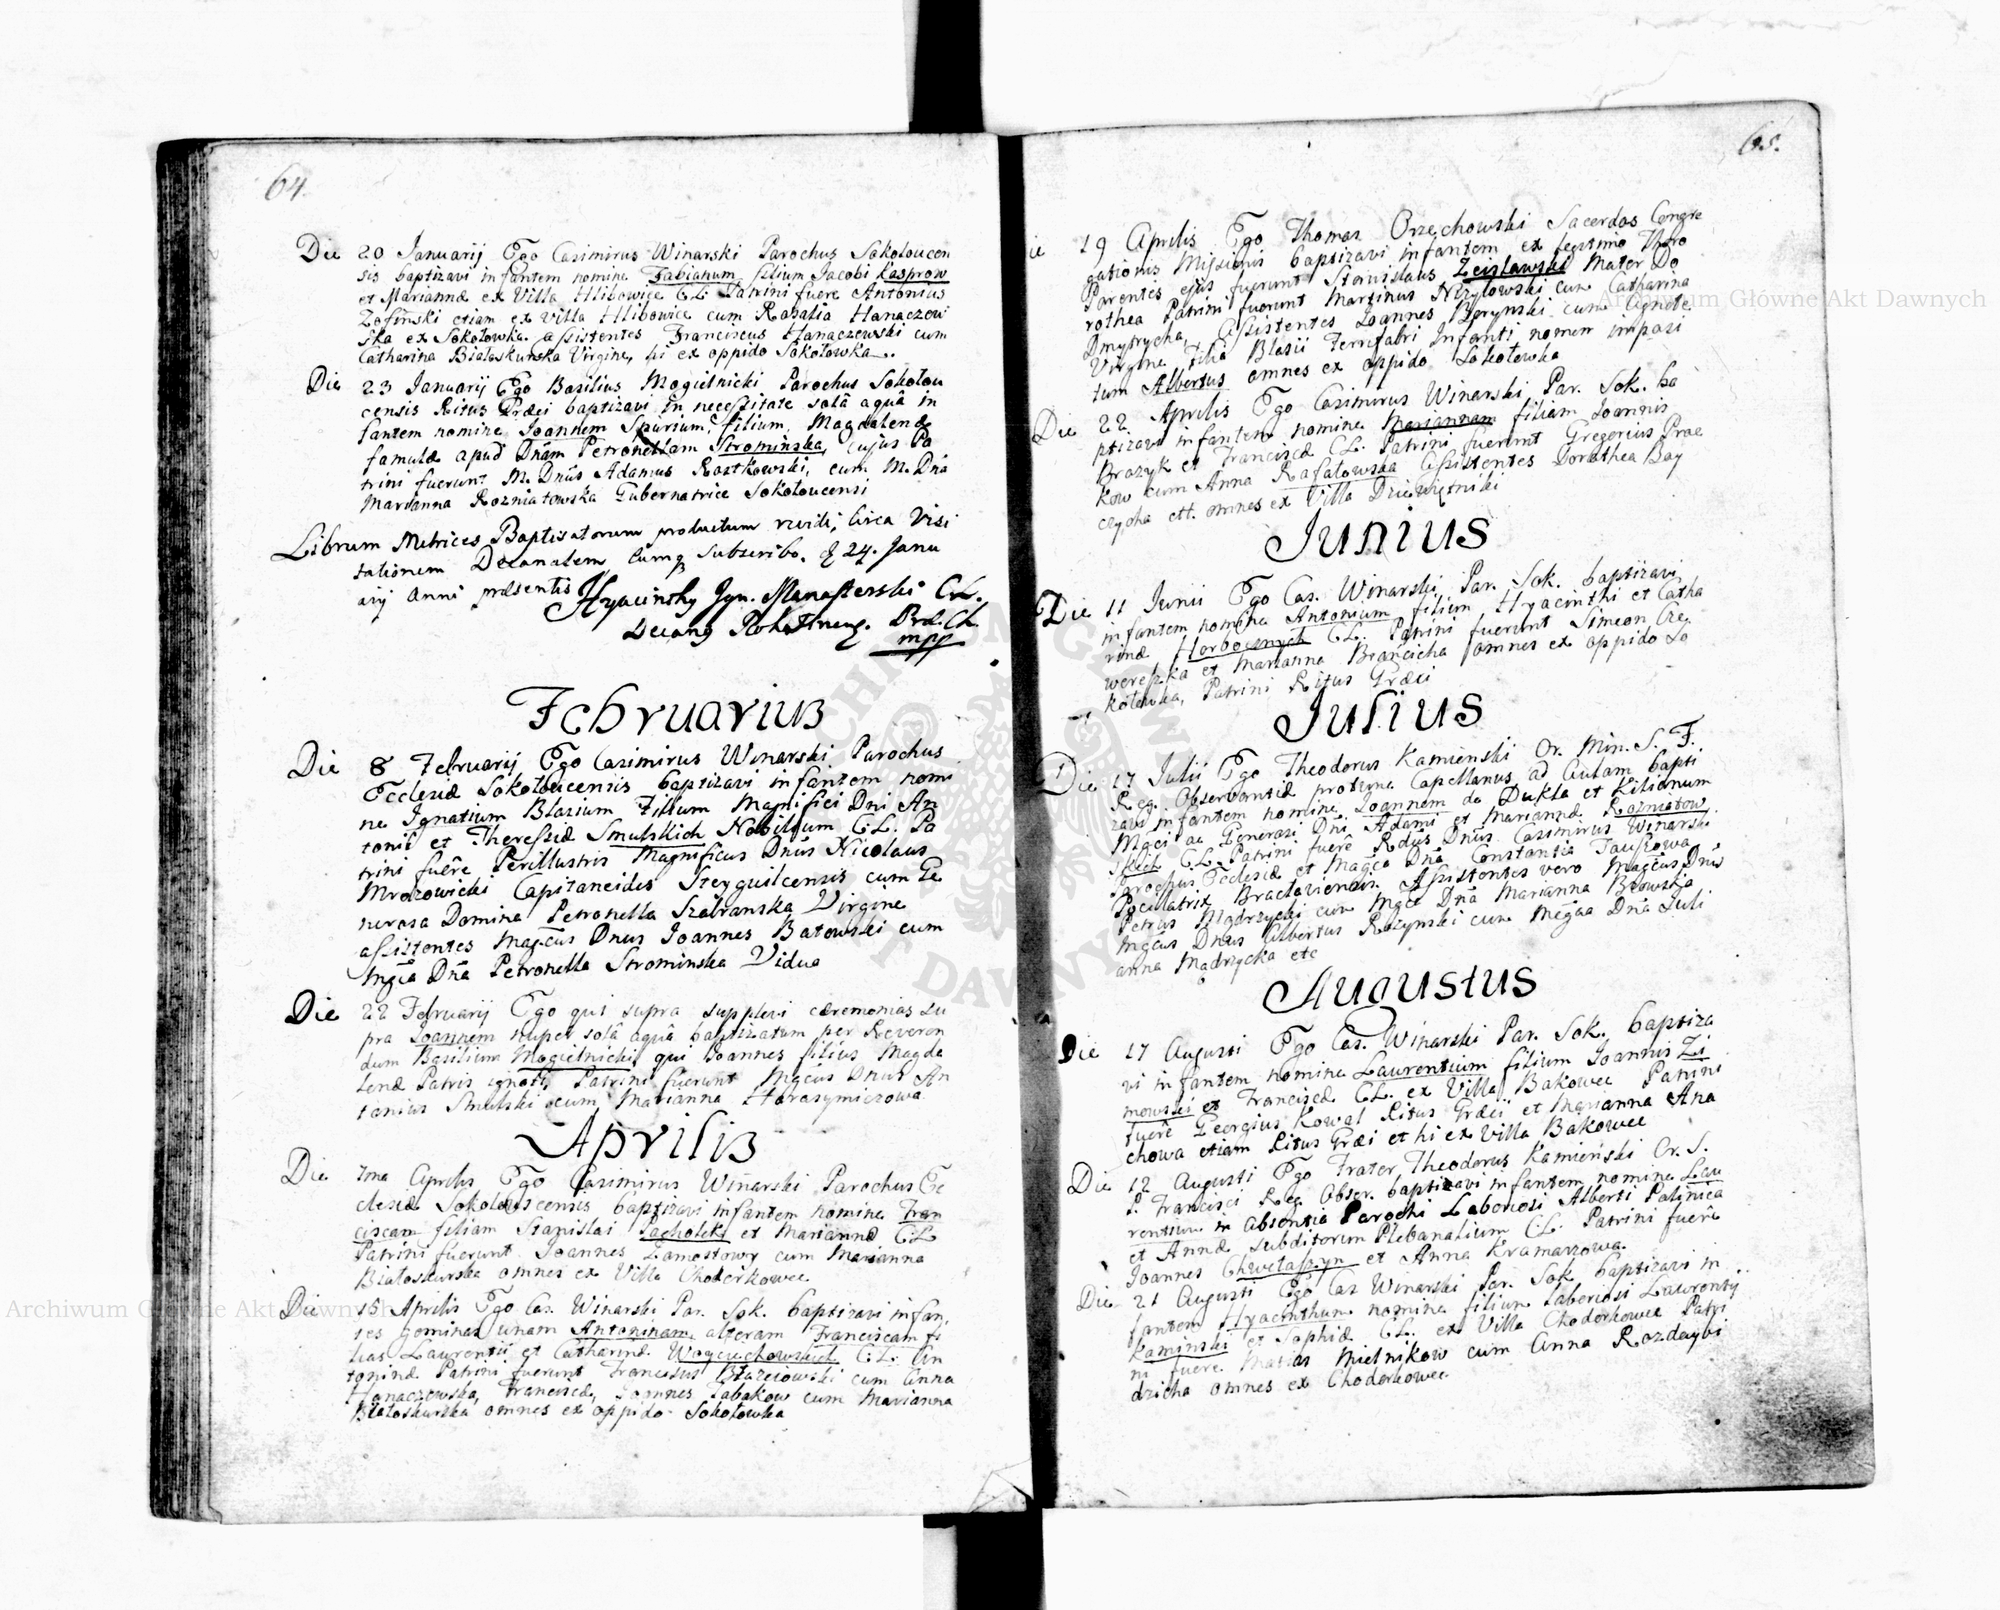 64.
Die 20 Januarij Ego Casimirus Winarski Parochus Sokołoucen
sis baptizavi infantem nomine Fabianum, filium Jacobi Kasprow
et Mariannæ ex Villa Hlibowice C.L. Patrini fuere Antonius
Zofiński etiam ex villa Hlibowice cum Rosalia Hanaczow
ska ex Sokołowka. assistentes Franciscus Hanaczewski cum
Catharina Białaskurska Virgine, hi ex oppido Sokołowka.
Die 23 Januarij Ego Basilius Mogielnicki Parochus Sokołou
censis Ritus Græci baptizavi in necessitate solâ aquâ in
fantem nomine Joannem Spurium, filium, Magdalenæ
famulæ apud Dnam Petronellam Strominska, cujus Pa
trini fuerunt M. Dnūs Adamus Rostkowski, cum M. Dnā
Marianna Rozniatowska Gubernatrice Sokołoucensi
Librum Metrices Baptisatorum productum revidi, Circa Visi
tationem Decanalem, Eumq subscribo. d 24. Janu
arij Anni præsentis Hyacinthy Ign. Manasterski C.L.
Decang
mpp
Februarius
Die 8 Februarij Ego Casimirus Winarski Parochus
Ecclesiæ Sokołoucensis baptizavi infantem nomi
ne Ignatium Blasium Filium Magnifici Dni An
tonii et Theressiæ Smulskich Nobilium C.L. Pa
trini fuêre Perillustris Magnificus Dnūs Nicolaus
Mrozowicki Capitaneides Steyguilcensis cum Ge
nerosa Domina Petronella Szabranska Virgine
assistentes Mageus Dnus Joannes Batowski cum
Mgcā Dnā Petronella Strominska Vidua
Die 22 Februarij Ego qui supra supplevi cæremonias su
pra Joannem nuper solâ aquâ baptizatum per Reveron
dum Basilium Mogielnicki, qui Joannes filius Magda
lenæ Patris ignoti, Patrini fuerunt Mgcus Dnus An
tonius Smulski cum Marianna Harasymiczowa
Aprilis
Die 7ma Aprilis Ego Casimirus Winarski Parochus Ec
clesiæ Sokołoucensis baptizavi infantem nomine Fran
ciscam filiam Stanislai Pacholek et Mariannæ C.L.
Patrini fuerunt Joannes Zamostowy cum Marianna
Białoskurska omnes ex Villa Choderkowce
Die 15 Aprilis Ego Cas. Winarski Par. Sok. baptizavi infan,
tes geminas unam Antoninam, alteram Franciscam fi
lias Laurentii et Catharinæ Woyciechowskich C.L. An
toninæ Patrini fuerunt Franciscus Błazeiowski cum Anna
Hanaczowska, Franciscæ, Joannes Sabakow cum Marianna
Białoskurska omnes ex oppido Sokołowka
65.
ie 19 Aprilis Ego Thomas Orzechowski Sacerdos Congre
gationis Missionis baptizavi infantem ex legitimo Thoro
Parentes ejus fuerunt Stanislaus Zeislawski Mater Do
rothea Patrini fuerunt Martinus Nizylowski cum Catharina
Dmytrycha, Assistentes Joannes Borynski cum Agnete
Virgine Filia Blasii Ferrifabri Infanti nomen imposi
tum Albertus omnes ex oppido Sokołowka
Die 22 Aprilis Ego Casimirus Winarski Par. Sok. ba
ptizavi infantem nomine Mariannam filiam Joannis
Brazyk et Franciscæ C.L. Patrini fuerunt Gregorius Prac
kow cum Anna Rafałowska Assistentes Dorothea Bay
czycha ett. omnes ex Villa Dziewiętniki
Junius
Die 11 Junii Ego Cas. Winarski Par. Sok. baptizavi
infantem nomine Antonium filium Hyacinthi et Catha
rinæ Horbocznych C.L. Patrini fuerunt Simeon Cze
wereszka et Marianna Brancicha omnes ex oppido So
kołowka, Patrini Ritus Græci
Julius
Die 17 Julii Ego Theodorus Kamienski Or. Min. S. F.
Reg. Observantiæ protunc Capellanus ad Aulam bapti
zavi infantem nomine Joannem de Dukla et Kilianum
Mgci ac Generosi Dni Adami et Mariannæ Rozniatow
skich C.L. Patrini fuêre Rdūs Dnūs Casimirus Winarski
Parochus Ecclesiæ et Magca Dnā Constantia Jauszowa
Pocillatrix Braclaviensis Assistentes vero Magcūs Dnūs
Petrus Mądrzycki cum Mgca Dnā Marianna Brzowska
Mgcus Dnus Albertus Rozynski cum Megca Dnā Juli
anna Mądrzycka etc
Augustus
Die 17 Augusti Ego Cas. Winarski Par. Sok. baptiza
vi infantem nomine Laurentium filium Joannis Zi
mowski et Franciscæ C.L. ex Villa Bakowce Patrini
fuêre Georgius Kowal Ritus Græci et Marianna Ana
chowa etiam Ritus Græci et hi ex Villa Bakowce
Die 12 Augusti Ego Frater Theodorus Kamienski Or. S.
P. Francisci Reg. Obser. baptizavi infantem nomine Lau
rentium in absentia Parochi Laboriosi Alberti Palinica
et Annæ subditorum Plebanalium C.L. Patrini fuêre
Joannes Chwetaszyn et Anna Kramarzowa
Die 21 Augusti Ego Cas Winarski Par. Sok. baptizavi in
fantem Hyacinthum nomine filium laboriosi Laurenty
Kaminski et Sophiæ C.L. ex Villa Choderkowce Patri
ni fuêre Matias Mielnikow cum Anna Rozdaybi
dzicha omnes ex Choderkowce
Archiwum Główne Akt Dawnych
Archiwum Główne Akt Dawnych